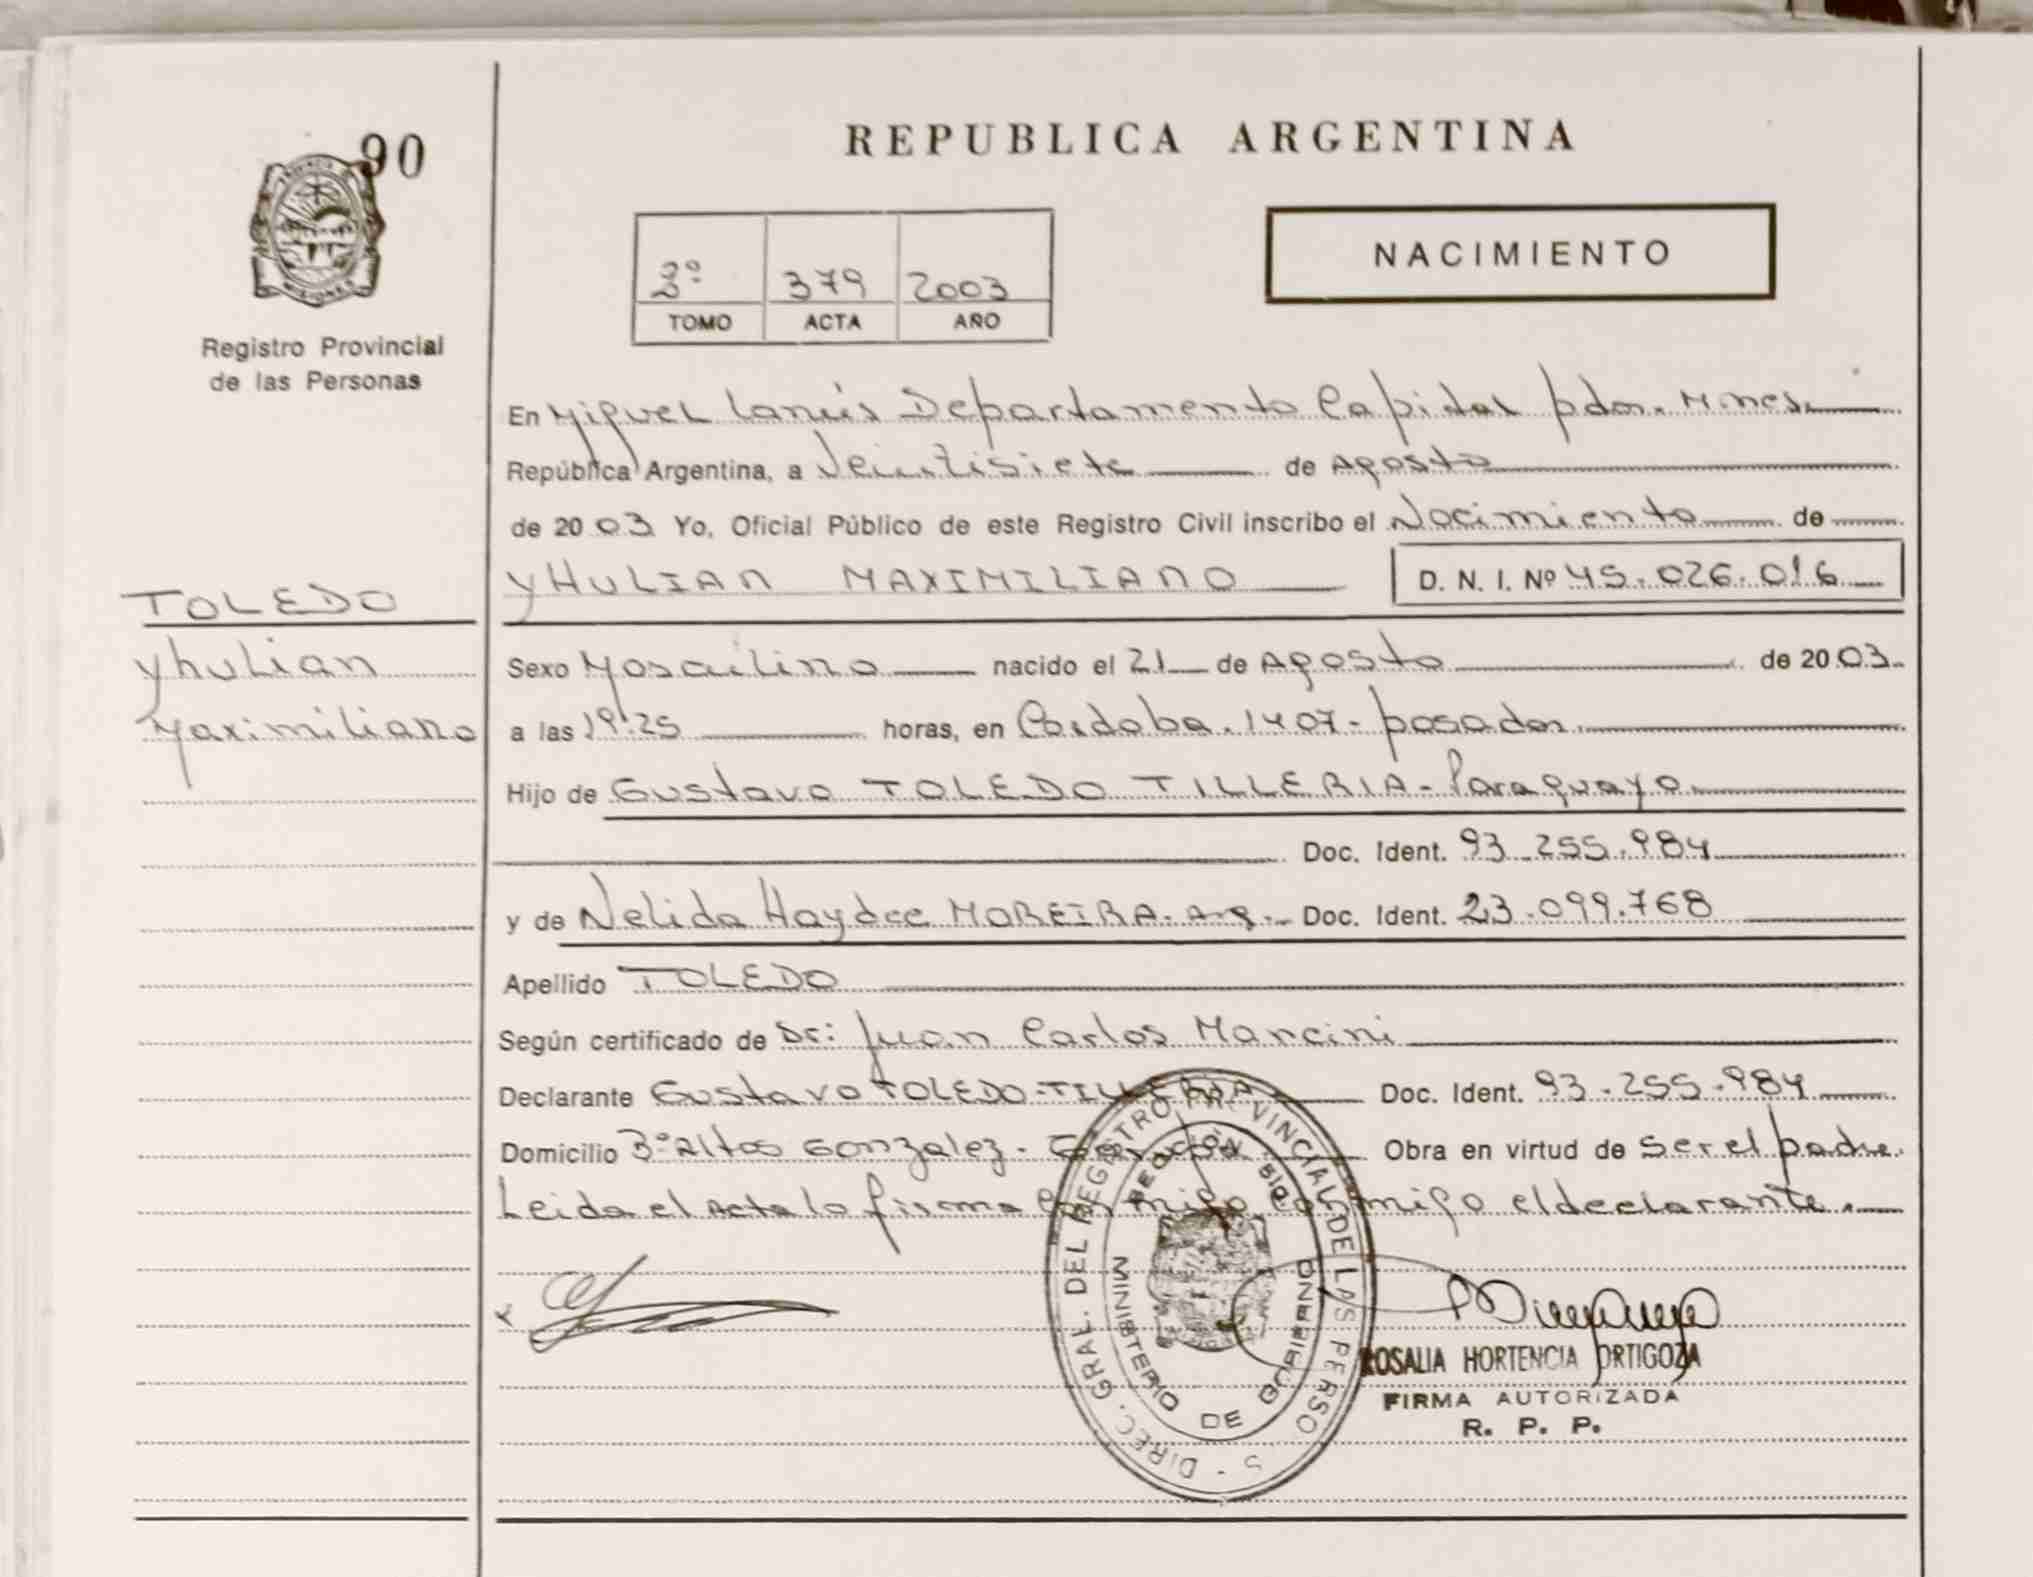 90
REPUBLICA ARGENTINA
NACIMIENTO
2º 379 2003
TOMO ACTA AÑO
Registro Provincial
de las Personas
En Miguel Lanús Departamento Capital pdas. Mnes.
República Argentina, a Veintisiete de Agosto
de 2003 Yo, Oficial Público de este Registro Civil inscribo el Nacimiento de
YHULIAN MAXIMILIANO D. N. I. Nº 45.026.016
TOLEDO
Yhulian
Maximiliano
Sexo Masculino nacido el 21 de Agosto de 2003
a las 19:25 horas, en Córdoba. 1407- posadas.
Hijo de Gustavo TOLEDO TILLERIA - Paraguayo
Doc. Ident. 93.255.984
y de Nelida Haydee MOREIRA - Arg. Doc. Ident. 23.099.768
Apellido TOLEDO
Según certificado de Dr: Juan Carlos Mancini
Declarante Gustavo TOLEDO-TILLERIA Doc. Ident. 93-255-984
Domicilio 3º Altos Gonzalez - Obra en virtud de ser el padre.
Leida el Acta lo firma conmigo conmigo el declarante.
DIREC. GRAL. DEL REGISTRO PROVINCIAL DE LAS PERSO S
MINISTERIO DE GOBIERNO
ROSALIA HORTENCIA ORTIGOZA
FIRMA AUTORIZADA
R. P. P.